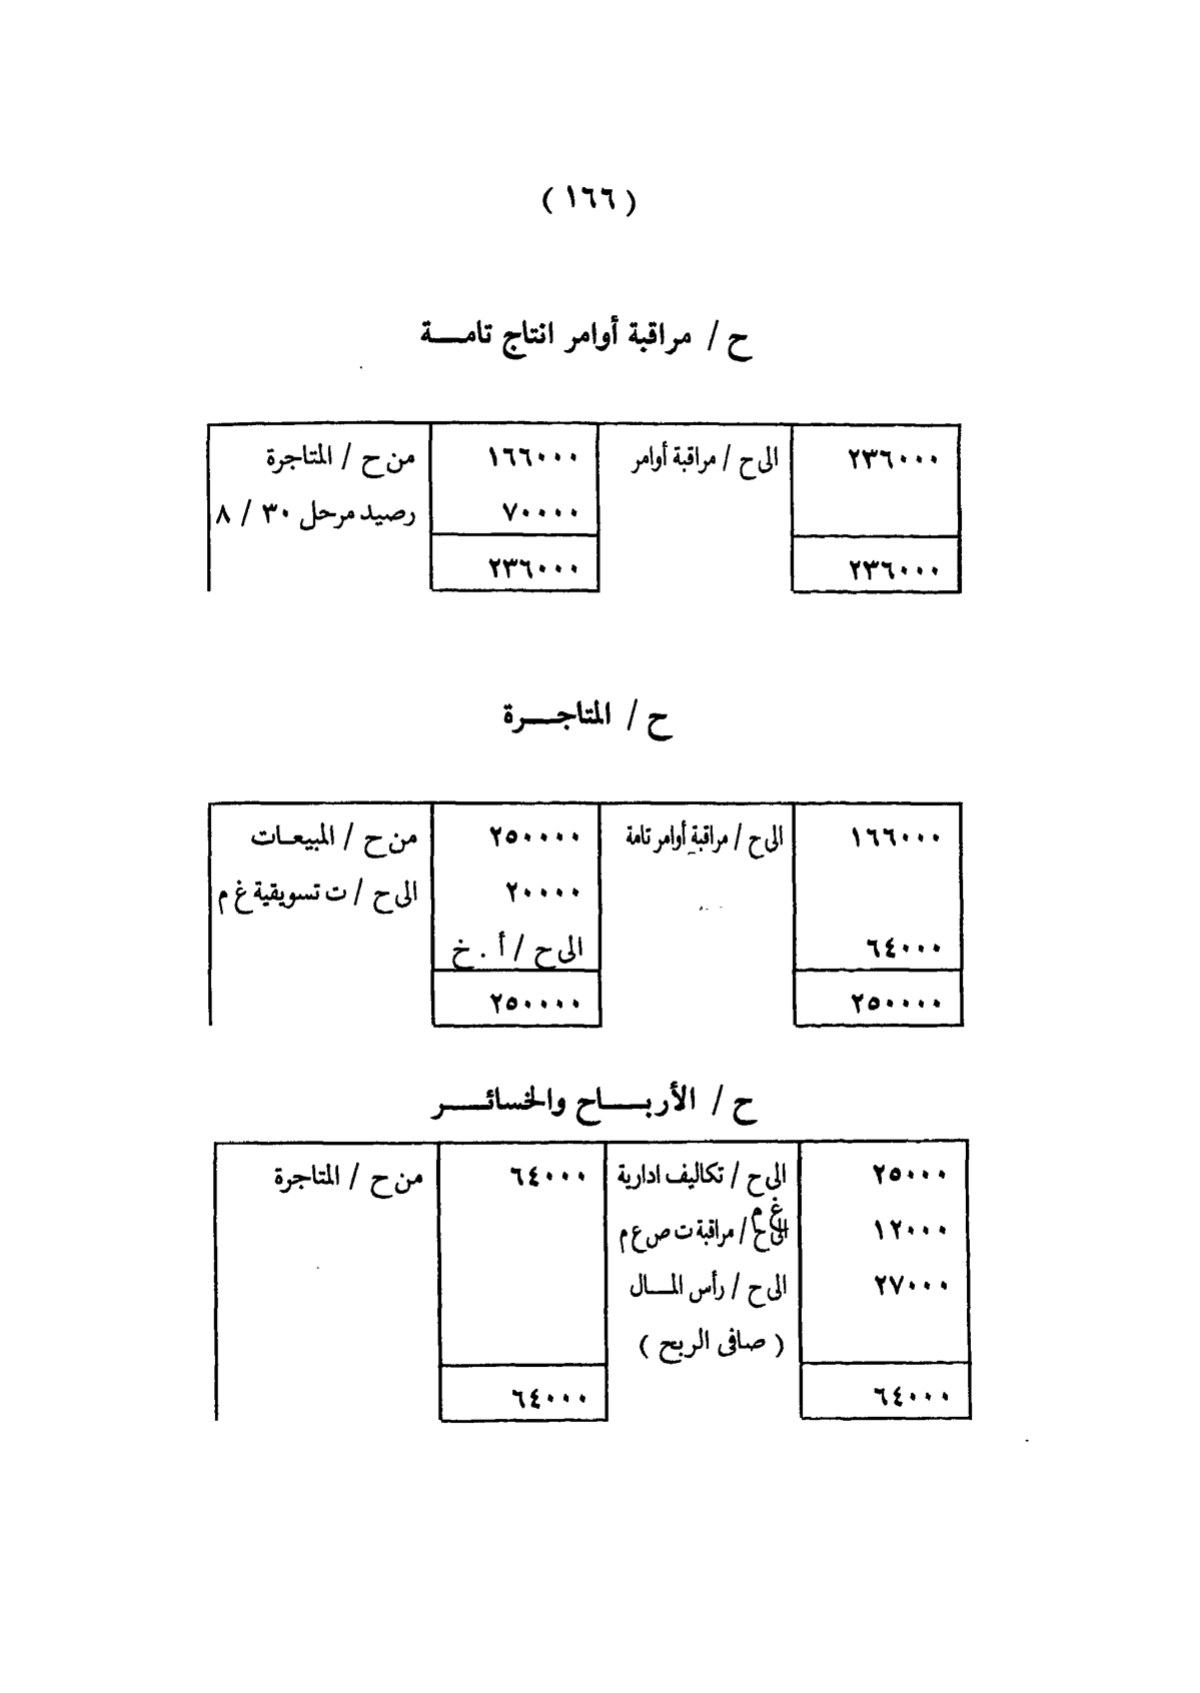 ( ١٦٦ )
ح / مراقبة أوامر انتاج تامـــة
٢٣٦٠٠٠ الى ح / مراقبة أوامر ١٦٦٠٠٠ من ح / المتاجرة
٧٠٠٠٠ رصيد مرحل ٣٠ / ٨
٢٣٦٠٠٠ ٢٣٦٠٠٠
ح / المتاجـــرة
١٦٦٠٠٠ الى ح / مراقبة أوامر تامة ٢٥٠٠٠٠ من ح / المبيعـات
٢٠٠٠٠ الى ح / ت تسويقية غ م
٦٤٠٠٠ الى ح / أ . خ
٢٥٠٠٠٠ ٢٥٠٠٠٠
ح / الأربـــاح والخسائـــر
٢٥٠٠٠ الى ح / تكاليف ادارية ٦٤٠٠٠ من ح / المتاجرة
غ م
١٢٠٠٠ الى ح / مراقبة ت ص ع م
٢٧٠٠٠ الى ح / رأس المـــال
( صافى الربح )
٦٤٠٠٠ ٦٤٠٠٠